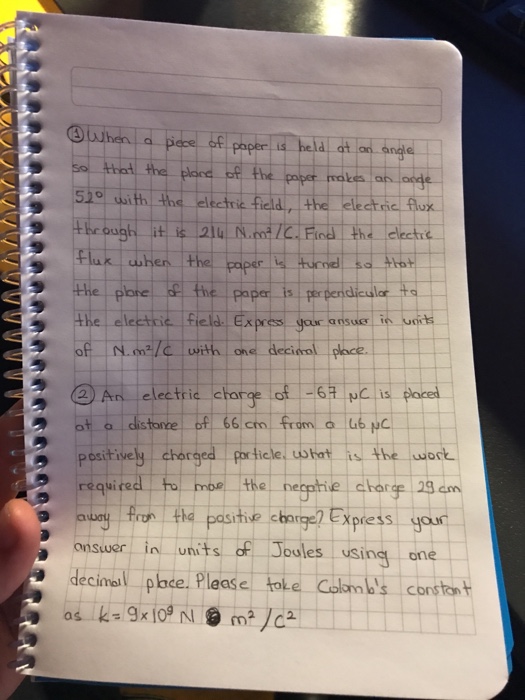 ① When a piece of paper is held at an angle
so that the plane of the paper makes an angle
52° with the electric field, the electric flux
through it is 214 N.m²/C. Find the electric
flux when the paper is turned so that
the plane of the paper is perpendicular to
the electric field. Express your answer in units
of N.m²/C with one decimal place.
② An electric charge of -67 μC is placed
at a distance of 66 cm from a 46 μC
positively charged particle. What is the work
required to move the negative charge 29 cm
away from the positive charge? Express your
answer in units of Joules using one
decimal place. Please take Colomb's constant
as k = 9x10⁹ N m²/C²